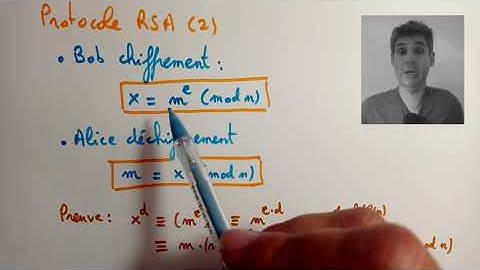 Protocole RSA (2)
• Bob chiffrement :
x ≡ m^e (mod n)
• Alice déchiffrement
m ≡ x (mod n)
Preuve : x^d ≡ (m^e ≡ m^e·d
≡ m · (m mod n)